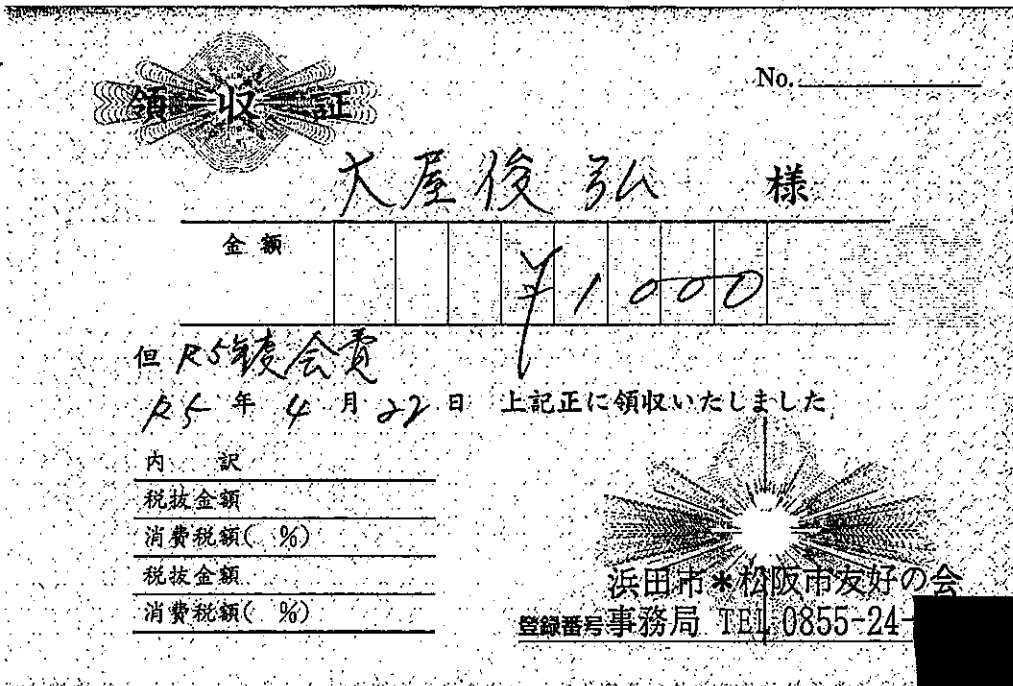 領収証
No.
大屋俊弘 様
金額 ¥1000
但 R5年度会費
R5年4月22日 上記正に領収いたしました
内 訳
税抜金額
消費税額( %)
税抜金額
消費税額( %)
浜田市*松阪市友好の会
登録番号 事務局 TEL 0855-24-